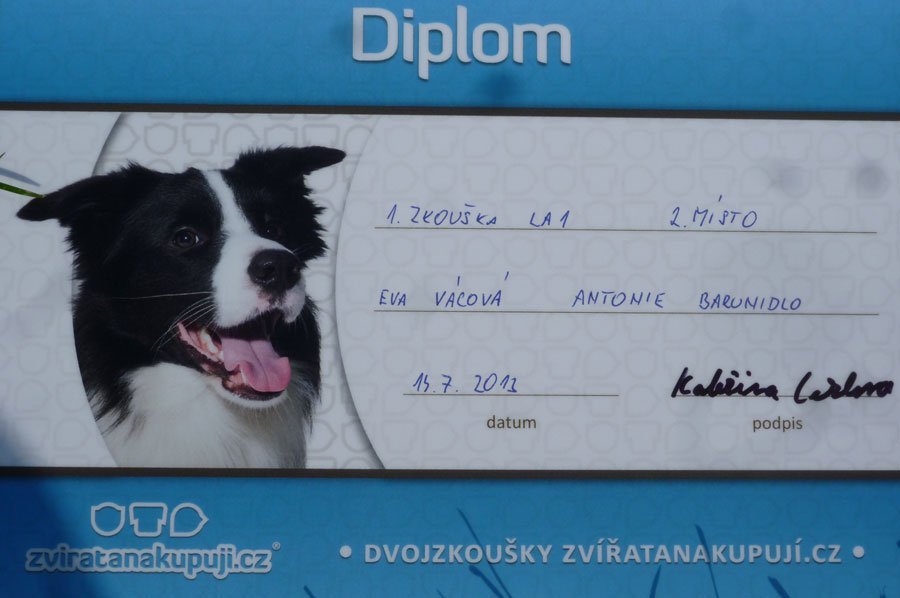 Diplom
1. ZKOUŠKA LA1 2. MÍSTO
EVA VÁCOVÁ ANTONIE BARUNIDLO
14.7. 2013
datum podpis
zvíratanakupuji.cz®
• DVOJZKOUŠKY ZVÍŘATANAKUPUJÍ.CZ •